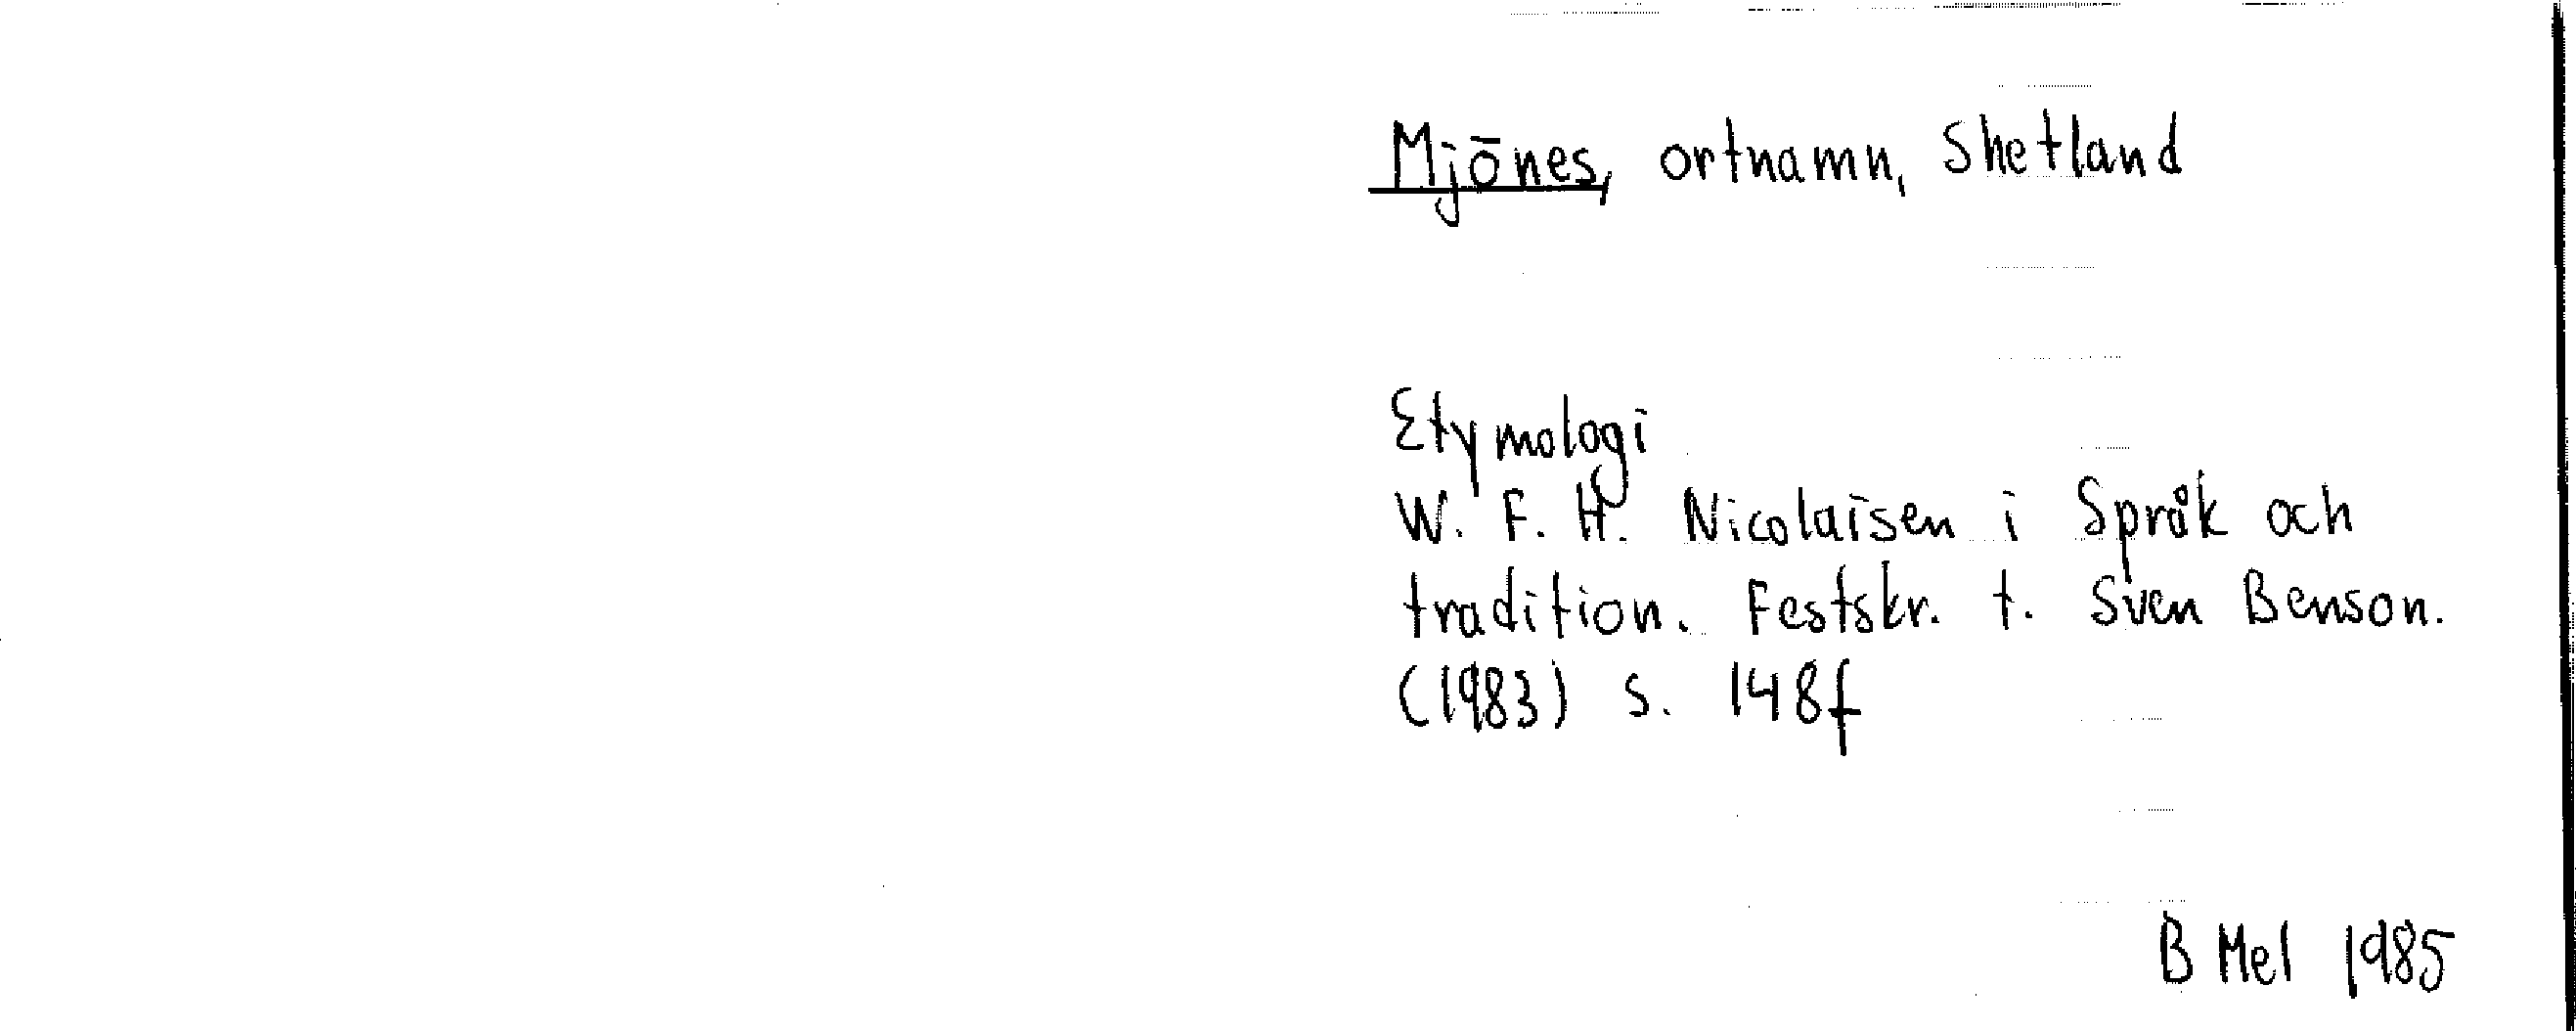 Mjōnes, ortnamn, Shetland
Etymologi
W. F. H. Nicolaisen i Språk och
tradition. Festskr. t. Sven Benson.
(1983) s. 148f
B Mel 1985